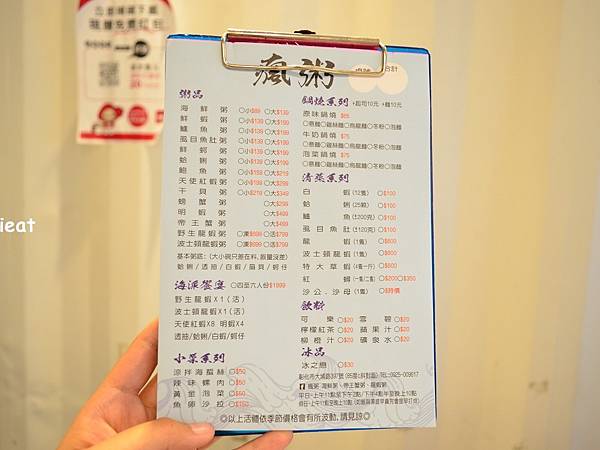 瘋粥
粥品
海鮮粥 ○小$89 ○大$139
鮮蝦粥 ○小$139 ○大$199
鱸魚粥 ○小$139 ○大$199
虱目魚肚粥 ○小$139 ○大$199
鮮蚵粥 ○小$139 ○大$199
蛤蜊粥 ○小$139 ○大$199
鮑魚粥 ○小$159 ○大$219
天使紅蝦粥 ○小$199 ○大$299
干貝粥 ○小$219 ○大$349
螃蟹粥 ○大$299
明蝦粥 ○大$499
帝王蟹粥 ○大$499
野生龍蝦粥 ○凍$699 ○活$799
波士頓龍蝦粥 ○凍$699 ○活$799
基本粥底：(大小碗只差在料,飯量沒差)
蛤蜊/透抽/白蝦/扇貝/蚵仔
海派饗宴 ○四至六人份$1999
野生龍蝦X1(活)
波士頓龍蝦X1(活)
天使紅蝦X8 明蝦X4
透抽/蛤蜊/白蝦/蚵仔
小菜系列
涼拌海蜇絲 ○$50
辣味螺肉 ○$50
黃金泡菜 ○$50
魚卵沙拉 ○$150
合計
鍋燒系列 +起司10元 +麵10元
原味鍋燒 $65
○意麵○雞絲麵○烏龍麵○冬粉○泡麵
牛奶鍋燒 $75
○意麵○雞絲麵○烏龍麵○冬粉○泡麵
泡菜鍋燒 $75
○意麵○雞絲麵○烏龍麵○冬粉○泡麵
清蒸系列
白蝦(12隻) ○$100
蛤蜊(25顆) ○$100
鱸魚(±200克) ○$100
虱目魚肚(±120克) ○$100
龍蝦(1隻) ○$600
波士頓龍蝦(1隻) ○$600
特大草蝦(4隻一斤) ○$600
紅蟳(一隻/二隻) ○$200○$350
沙公.沙母(1隻) ○$時價
飲料
可樂○$20 雪碧○$20
檸檬紅茶○$20 蘋果汁○$20
柳橙汁○$20 礦泉水○$20
冰品
冰之戀 ○$30
彰化市大埔路397號(85度c斜對面) TEL:0925-009617
瘋粥 海鮮粥、帝王蟹粥、龍蝦粥
◎以上活體依季節價格會有所波動,請見諒◎
ieat